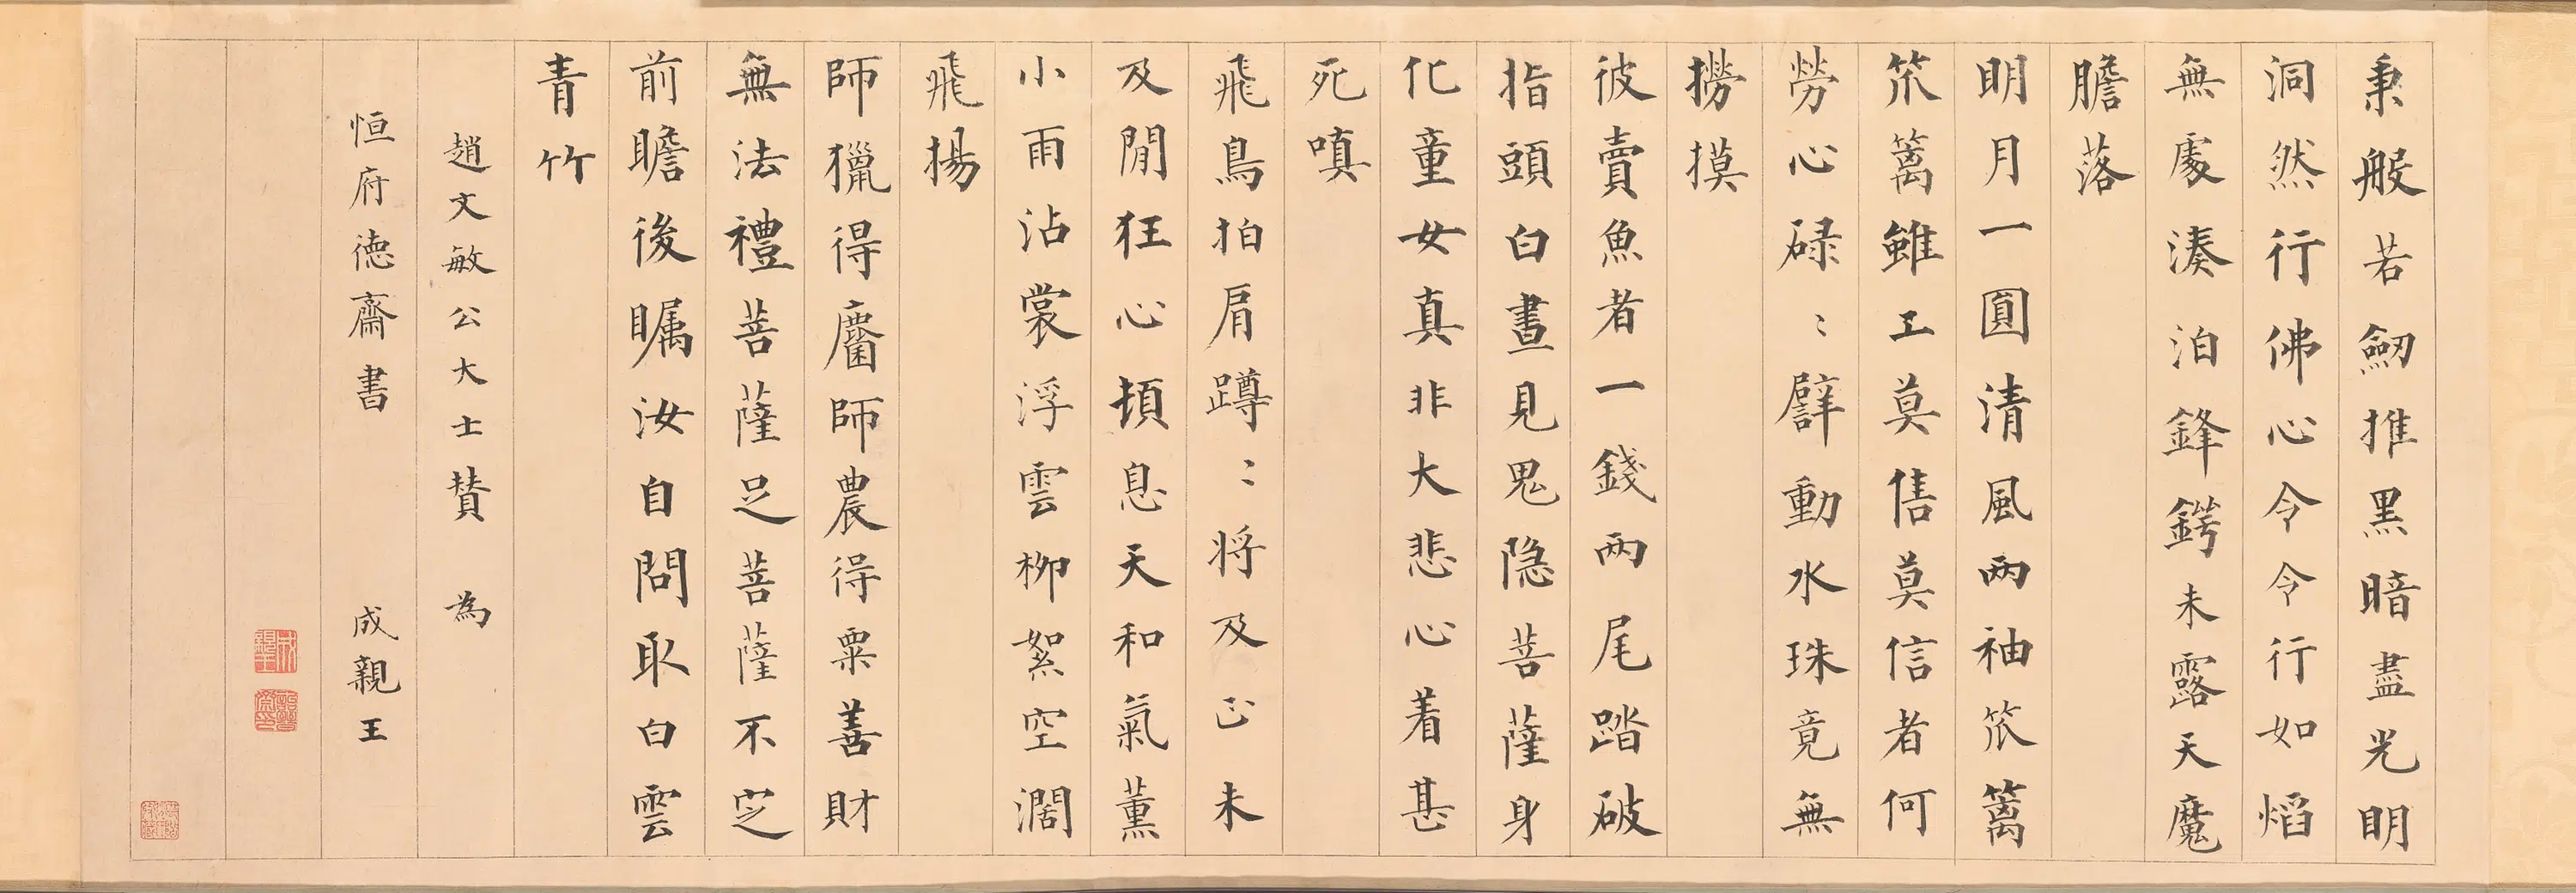 秉般若劒推黑暗盡光明
洞然行佛心令令行如熖
無處湊泊鋒鍔未露天魔
膽落
明月一圓清風兩袖笊籬
笊籬雖工莫售莫信者何
勞心碌〻擗動水珠竟無
撈摸
彼賣魚者一錢兩尾踏破
指頭白晝見鬼隐菩薩身
化童女真非大悲心着甚
死嗔
飛鳥拍肩蹲〻将及正未
及閒狂心頓息天和氣薰
小雨沾裳浮雲栁絮空濶
飛揚
師獵得麕師農得粟善財
無法禮菩薩足菩薩不定
前瞻後矚汝自問取白雲
青竹
趙文敏公大士賛 為
恒府德齋書 成親王